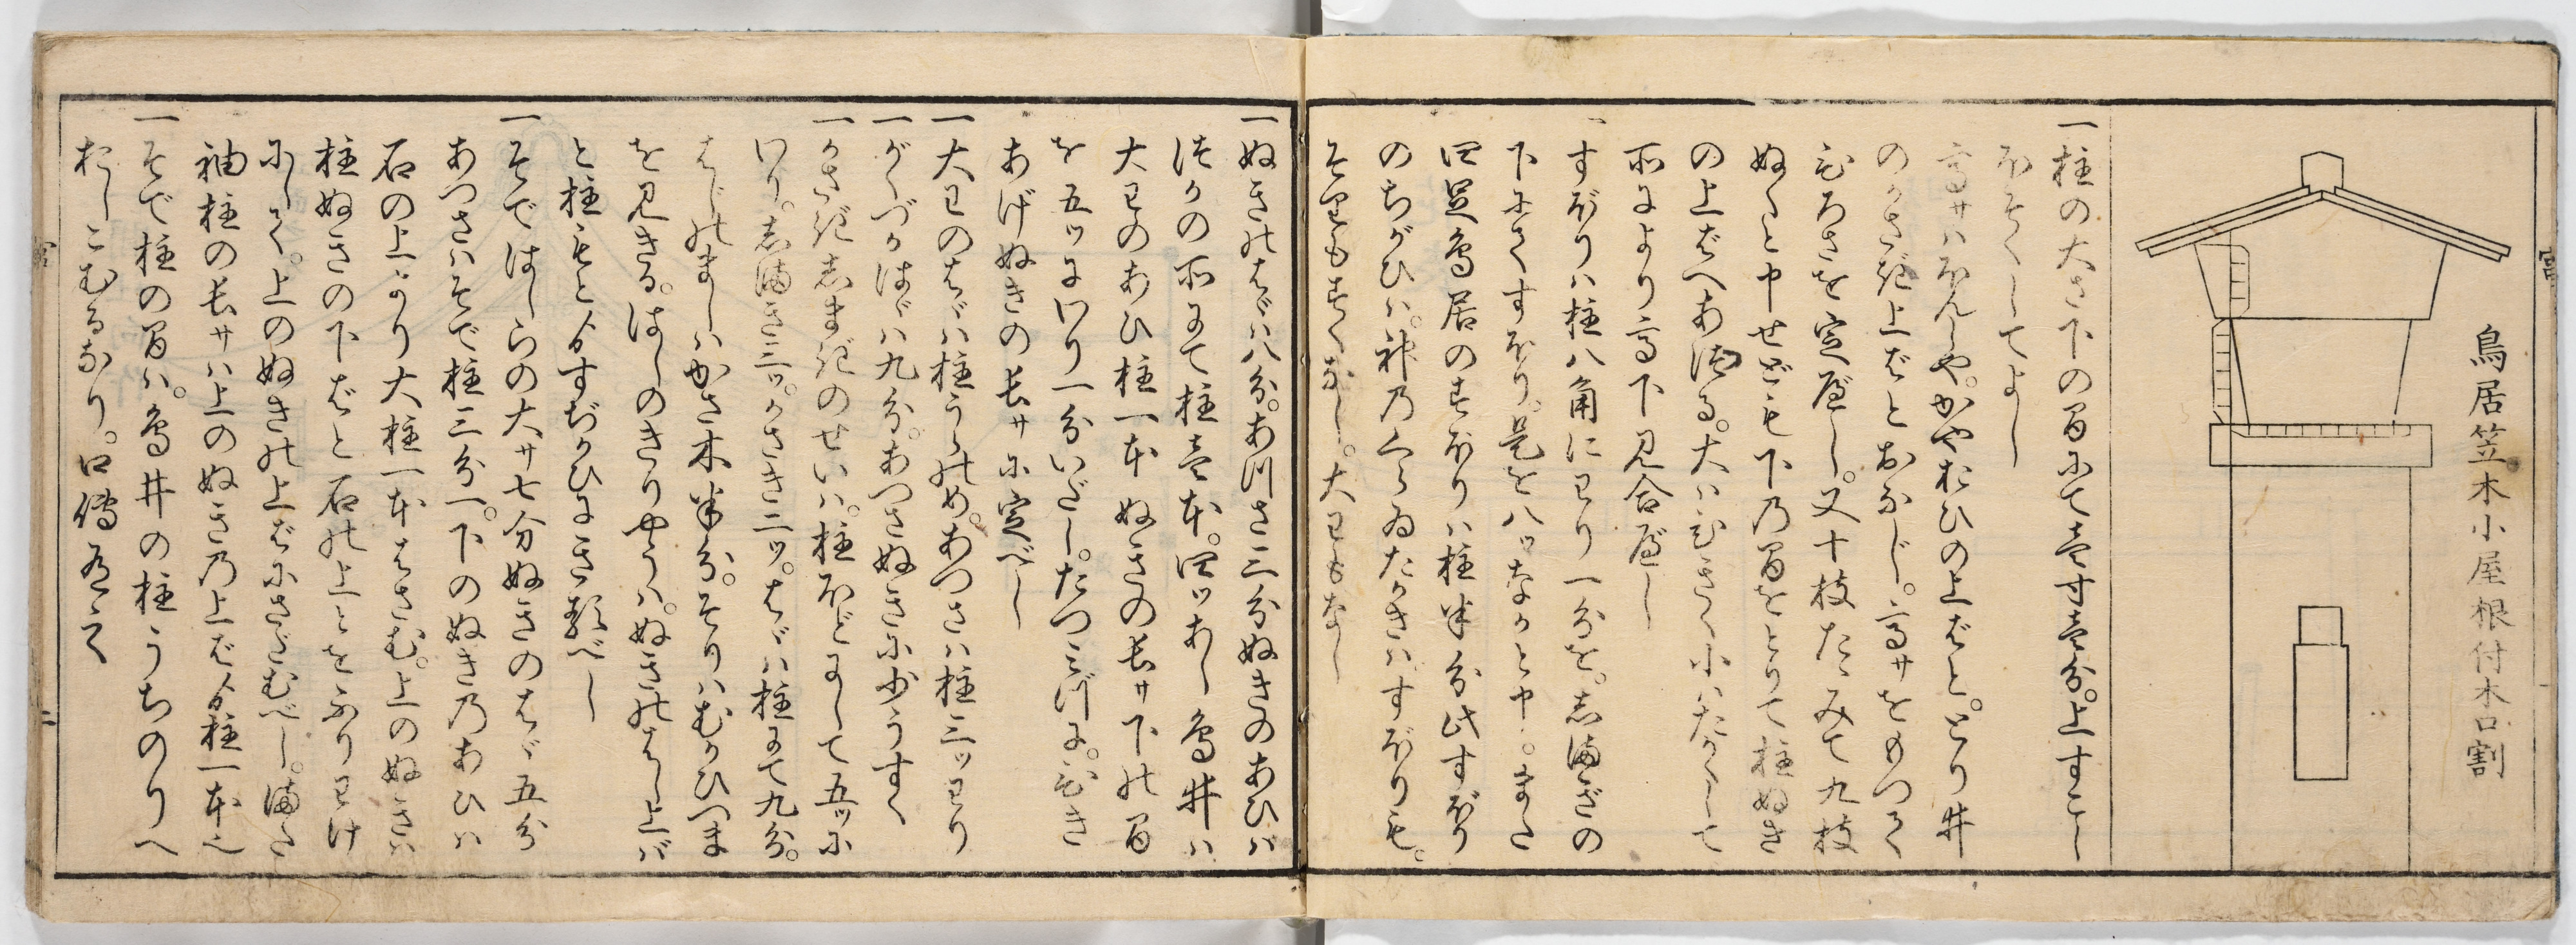 鳥居笠木小屋根付木口割
一柱の大さ下の間にて壱寸壱分。上すこし
ほそくしてよし
高サハほんしや。かやおひの上ばと。とり井
のかさ木上ばとおなじ。高サをもつて
ひろさを定べし。又十枝たゝみて九枝
ぬくと申せども下乃間をとりて柱ぬき
の上ばへあつる。大ハひきく小ハたかくして
所により高下見合べし
一すぼりハ柱八角にわり一分を。志まぎの
下にさくすぼり。是を八ツなかと申。また
四足鳥居のすぼりハ柱半分此すぼり
のちがひハ。神乃くらゐたかきハすぼりも。
そりもすくなし。大わもなし
一ぬきのはゞハ八分。あつさ三分ぬきのあひハ
はりの所にて柱壱本。四ツあし鳥井ハ
大わのあひ柱一本ぬきの長サ下の間
を五ツにわり一分いだし。たつミづに。ひき
あげぬきの長サに定べし
一大わのはゞハ柱うらのめ。あつさハ柱三ツわり
一がくづかはゞハ九分。あつさぬきに少うすく
一かさ木志ま木のせいハ。柱ほどにして五ツに
わり。志まき三ツ。かさき二ツ。はゞハ柱にて九分。
はじのましハかさ木半分。そりハむかひつま
を見きる。はしのきりやうハ。ぬきのはし上バ
と柱もとゟすぢかひにきるべし
一そではしらの大サ七分ぬきのはゞ五分
あつさハそで柱三分一。下のぬき乃あひハ
石の上より大柱一本はさむ。上のぬきハ
柱ぬきの下ばと石の上とをふりわけ
にして。上のぬきの上ばにさだむべし。まさ
袖柱の長サハ上のぬき乃上ばゟ柱一本也
一そで柱の間ハ。鳥井の柱うちのりへ
おしこむるなり。口傳有て